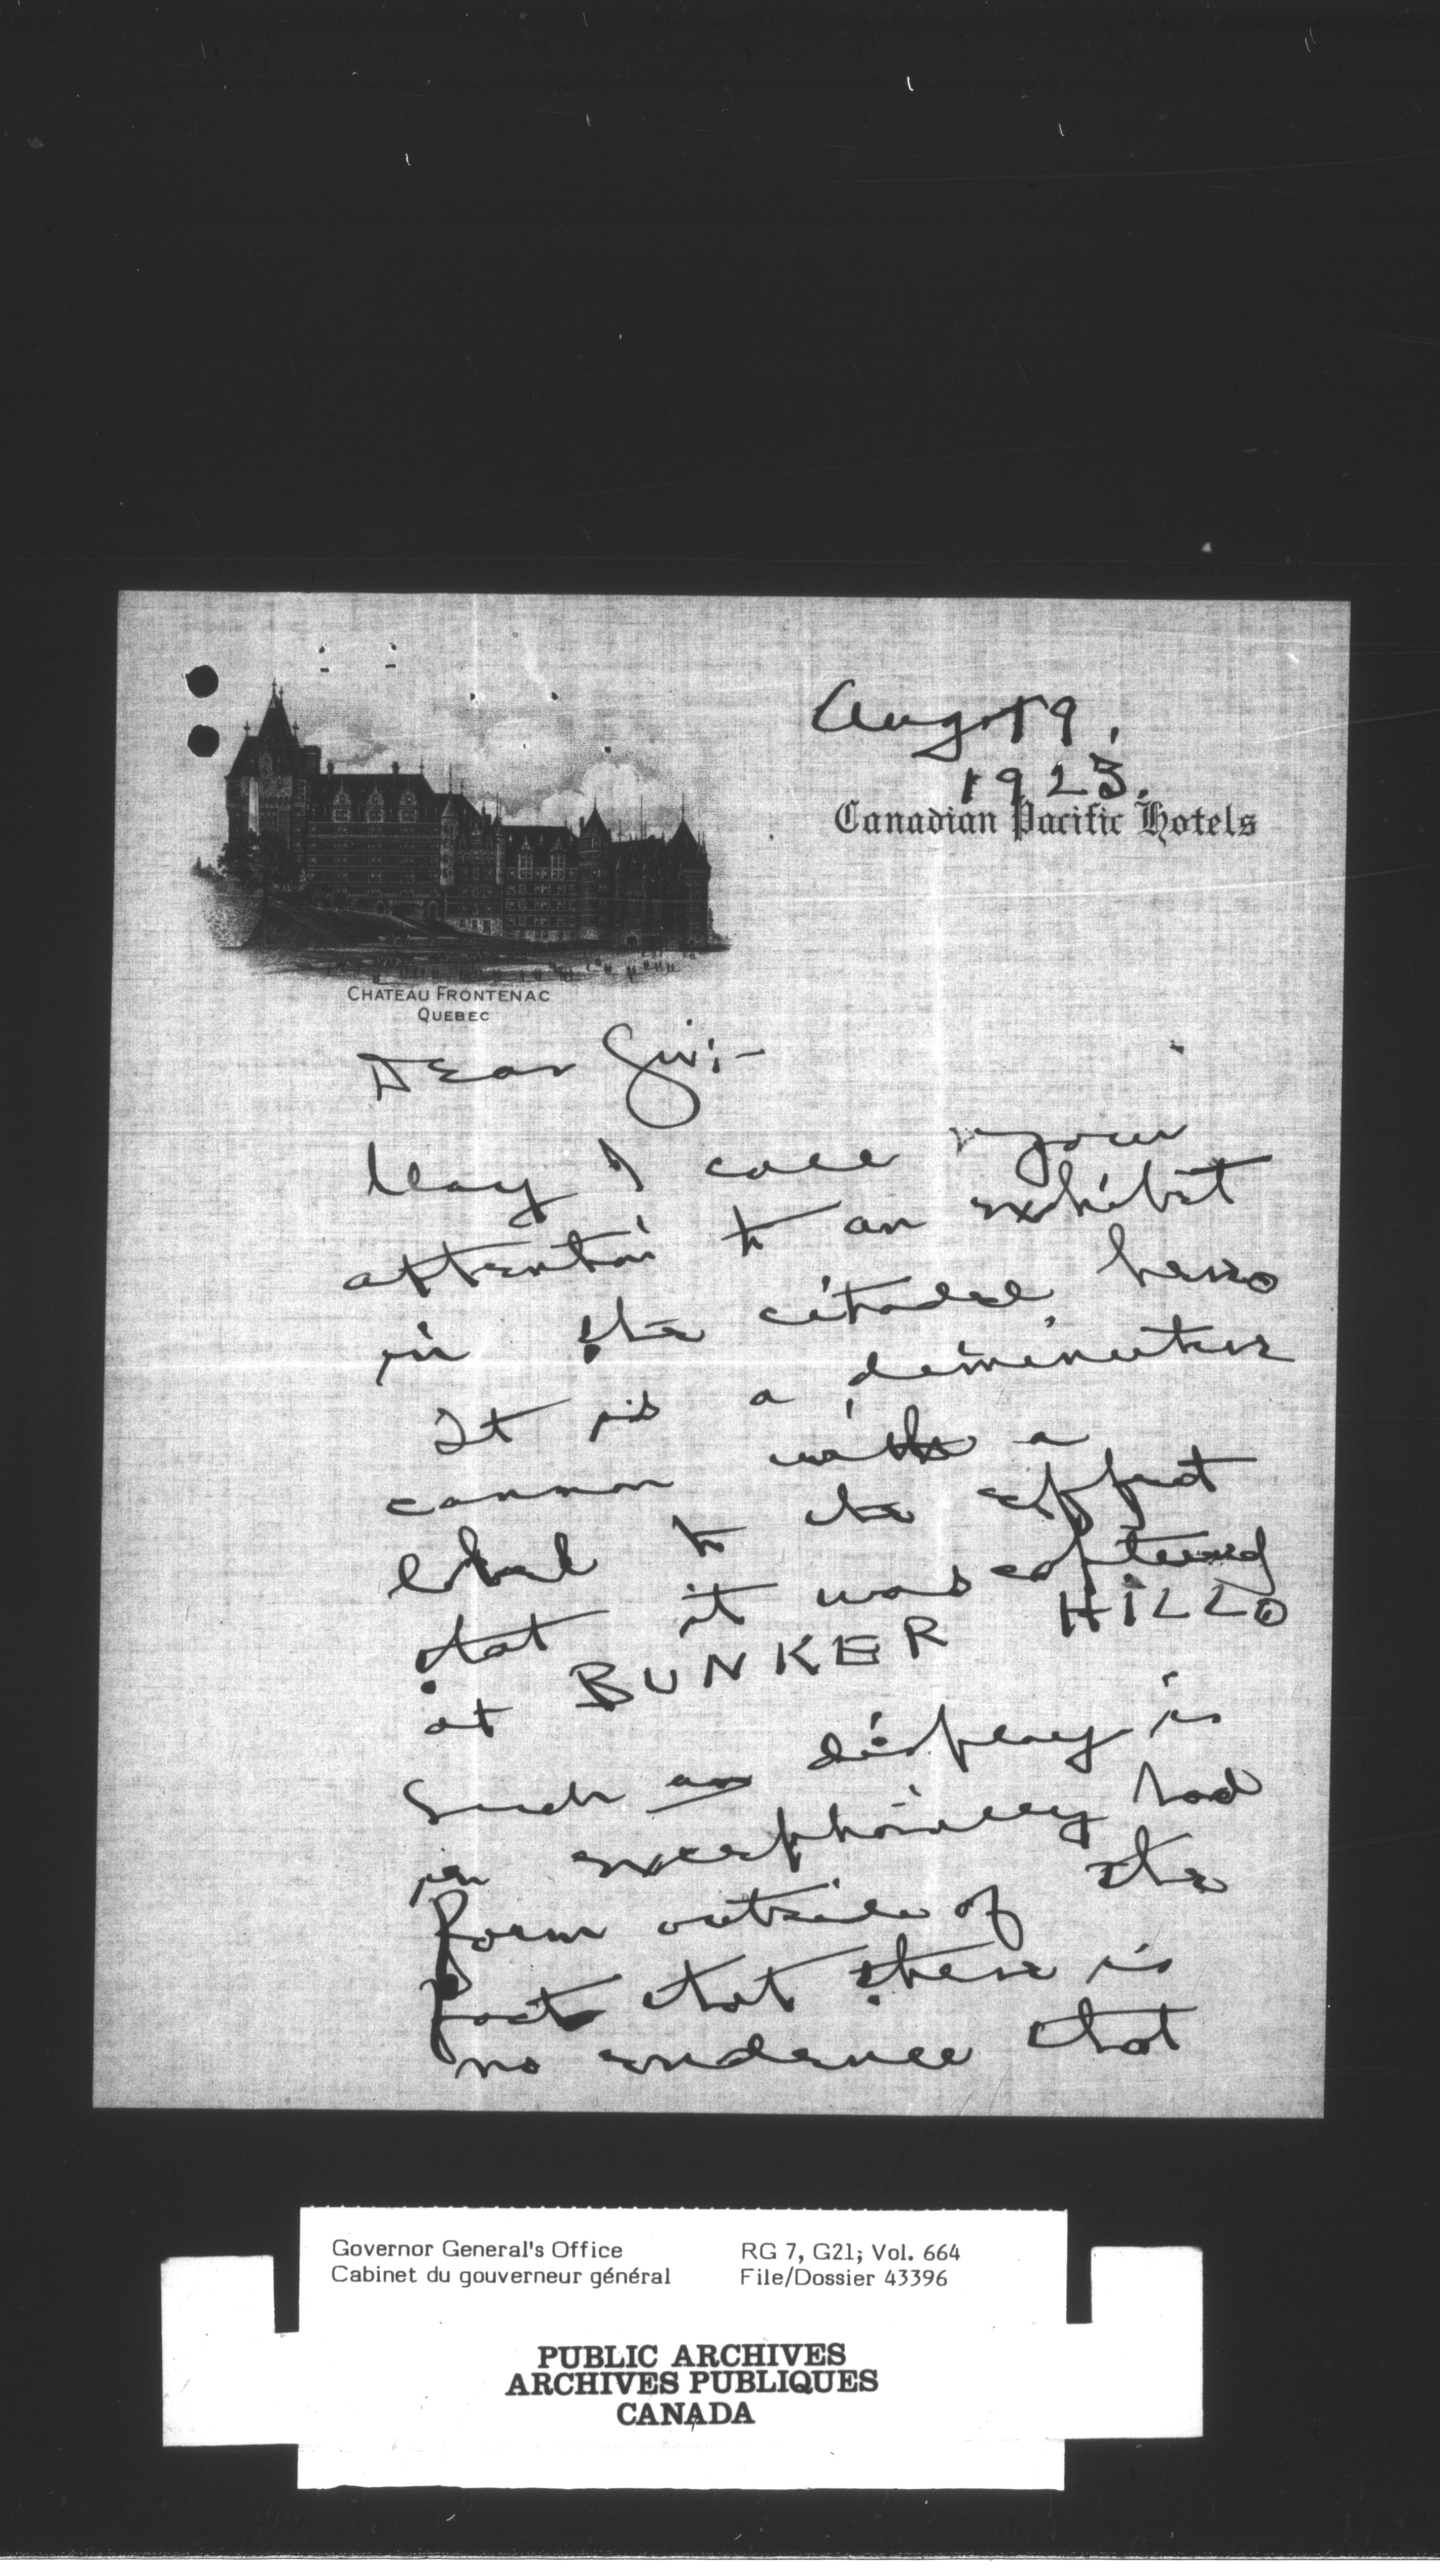 Aug 19,
1923.
Canadian Pacific Hotels
CHATEAU FRONTENAC
QUEBEC
Dear Sir:-
May I call your
attention to an exhibit
in the citadel here.
It is a diminutive
cannon with a
label to the effect
that it was captured
at BUNKER HILL.
Such an display is
in exceptionally bad
form outside of the
fact that there is
no evidence that
Governor General's Office
Cabinet du gouverneur général
RG 7, G21; Vol. 664
File/Dossier 43396
PUBLIC ARCHIVES
ARCHIVES PUBLIQUES
CANADA